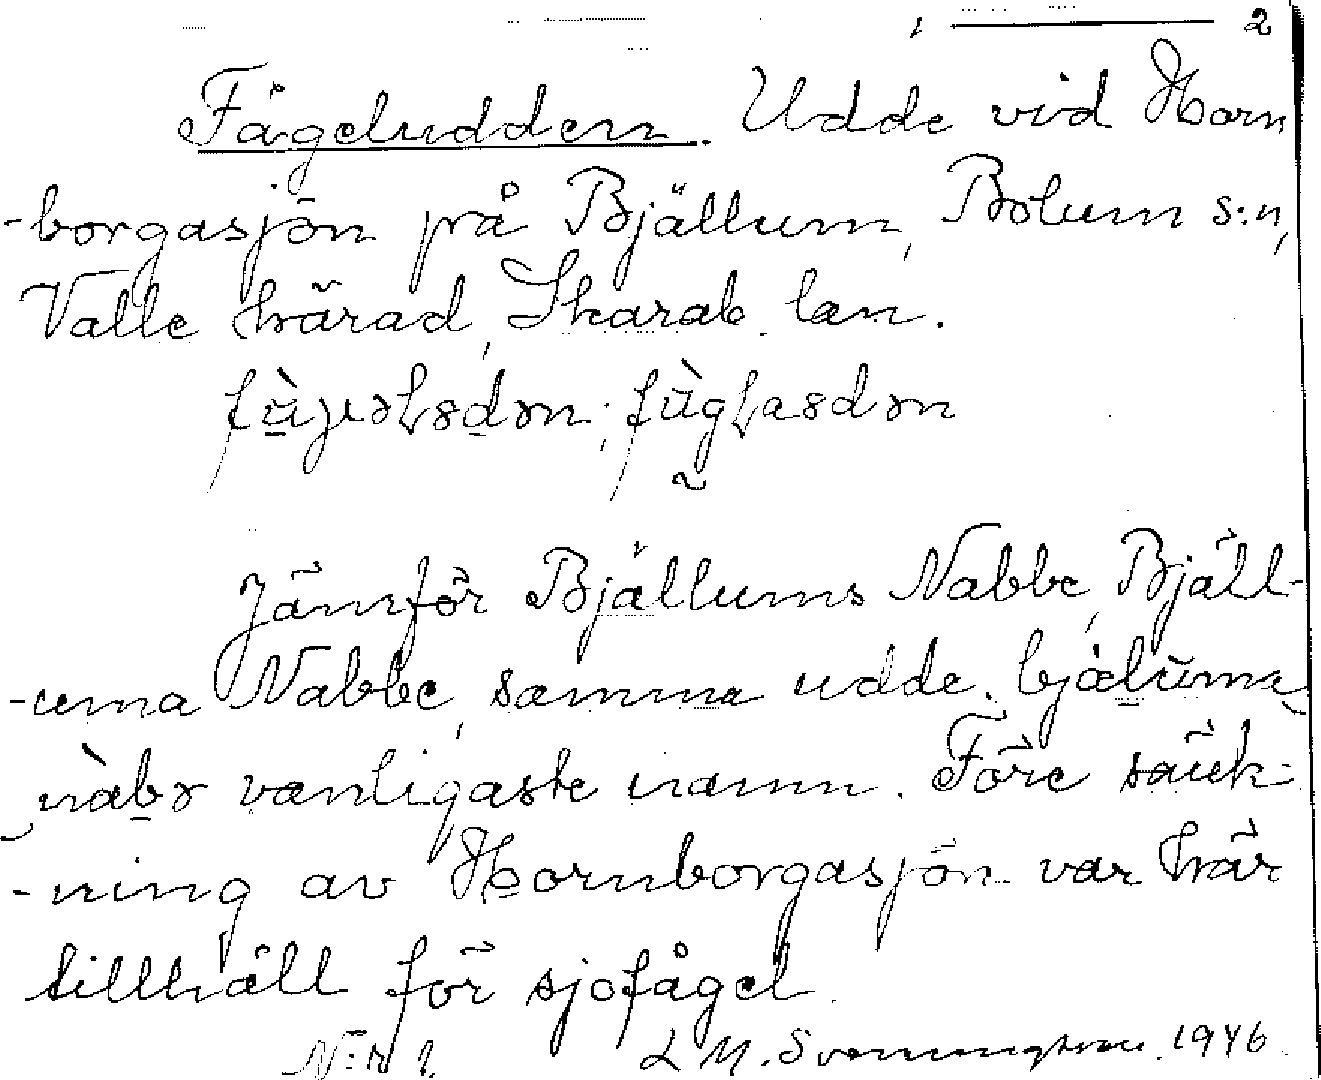 2
Fågeludden. Udde vid Horn
-borgasjön på Bjällum, Bolum s:n,
Valle härad, Skarab. län.
Jämför Bjällums Nabbe, Bjäll-
-uma Nabbe, samma udde.
vanligaste namn. Före sänk-
-ning av Hornborgasjön var här
tillhåll för sjöfågel.
L M. Svenungsson. 1946.